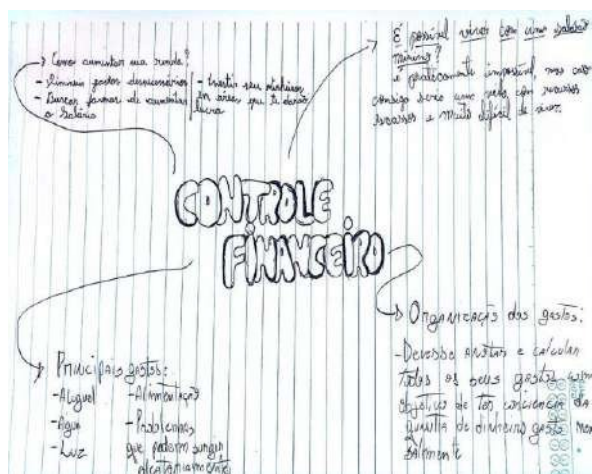 Como aumentar sua renda?
- Eliminar gastos desnecessários
- Buscar formas de aumentar
o Salário
- Investir seu dinheiro
em áreas que te darão
lucro
É possível viver com um salário
mínimo?
é praticamente impossível, mas caso
consiga seria uma vida com recursos
escassos e muito difícil de viver.
CONTROLE
FINANCEIRO
Principais gastos:
- Aluguel
- Água
- Luz
- Alimentação
- Problemas
que podem surgir
Organização dos gastos:
- Devesse anotar e calcular
todos os seus gastos com
objetivo de ter conciencia da
quantia de dinheiro gasto men
salmente